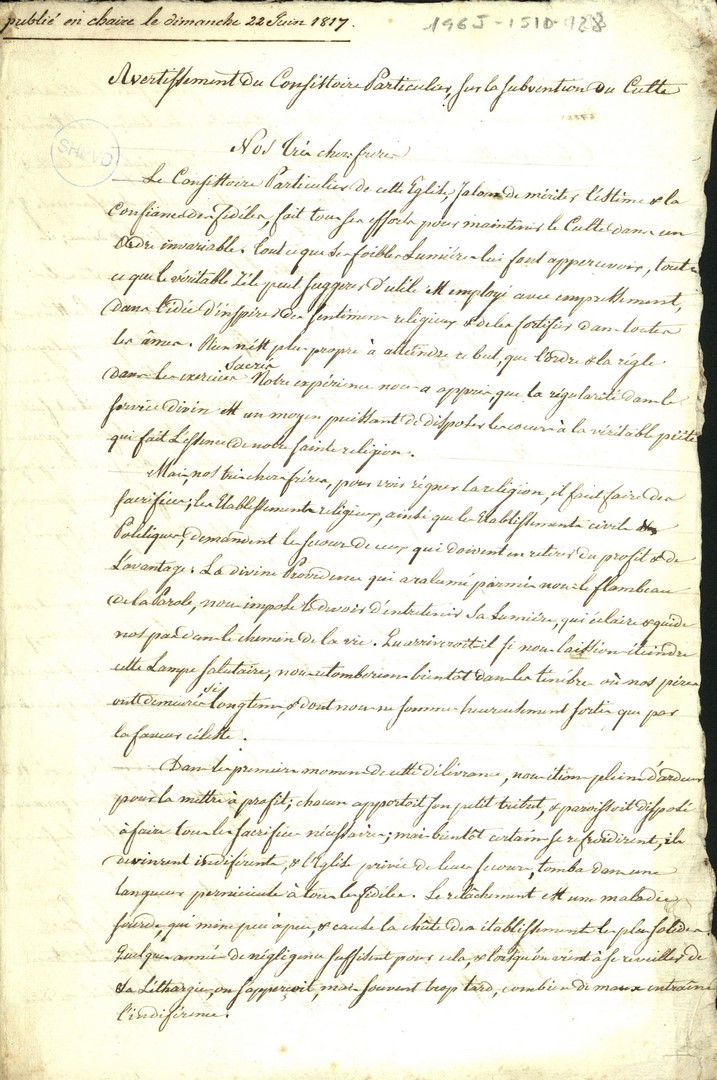 publié en chaire le dimanche 22 Juin 1817.
1965-1510-128
Avertissement du Consistoire Particulier, sur la subvention du Culte
SHPVD
Nos très chers frères
Le Consistoire Particulier de cette Eglise, Jaloux de mériter l'éstime & la
confiance des Fidèles, fait tous ses efforts pour maintenir le Culte dans un
Ordre invariable. Tout ce que Ses foibles Lumières lui font appercevoir, tout
ce que le véritable Zèle peut suggerer d'utile est employé avec empressement,
dans l'idée d'inspirer des sentimens religieux & de les fortifier dans toutes
les âmes. Rien n'est plus propre à atteindre ce but, que l'ordre & la règle
dans les exercices Sacrés Notre expérience nous a appris, que la régularité dans le
service divin est un moyen puissant de disposer les cœurs à la véritable piété
qui fait L'essence de notre sainte religion.
Mais, nos très chers frères, pour voir régner la religion, il faut faire des
sacrifices; les Etablissements religieux, ainsi que les Etablissements civils
Politiques, demandent le secours de ceux qui doivent en retirer du profit & de
L'avantage. La divine Providence qui a ralumé parmis nous le flambeau
de la Parole, nous impose le devoir d'entretenir Sa Lumière, qui éclaire & guide
nos pas dans le chemin de la vie. Qu'arriveroit-il si nous laissions éteindre
cette Lampe salutaire, nous retomberions bientôt dans les tenebres où nos pères
ont demeurés si longtems, & dont nous ne sommes heureusement sortis que par
la faveur céleste.
Dans les premiers momens de cette délivrance, nous étions pleins d'ardeur
pour la mettre à profit; chacun apportoit son petit tribut, & paroissoit disposé
à faire tous les sacrifices nécessaires; mais bientôt certains se refroidirent, ils
devinrent indiférents, & l'Eglise privée de leurs secours, tomba dans une
langueur pernicieuse à tous les fidèles. Le relâchement est une maladie
sourde, qui mine peu à peu, & cause la chûte des établissements les plus solides.
Quelques années de négligence suffisent pour cela, & lorsqu'on vient à se reveiller de
sa Léthargie, on s'apperçoit, mais souvent trop tard, combien de maux entraîne
l'indiférence.